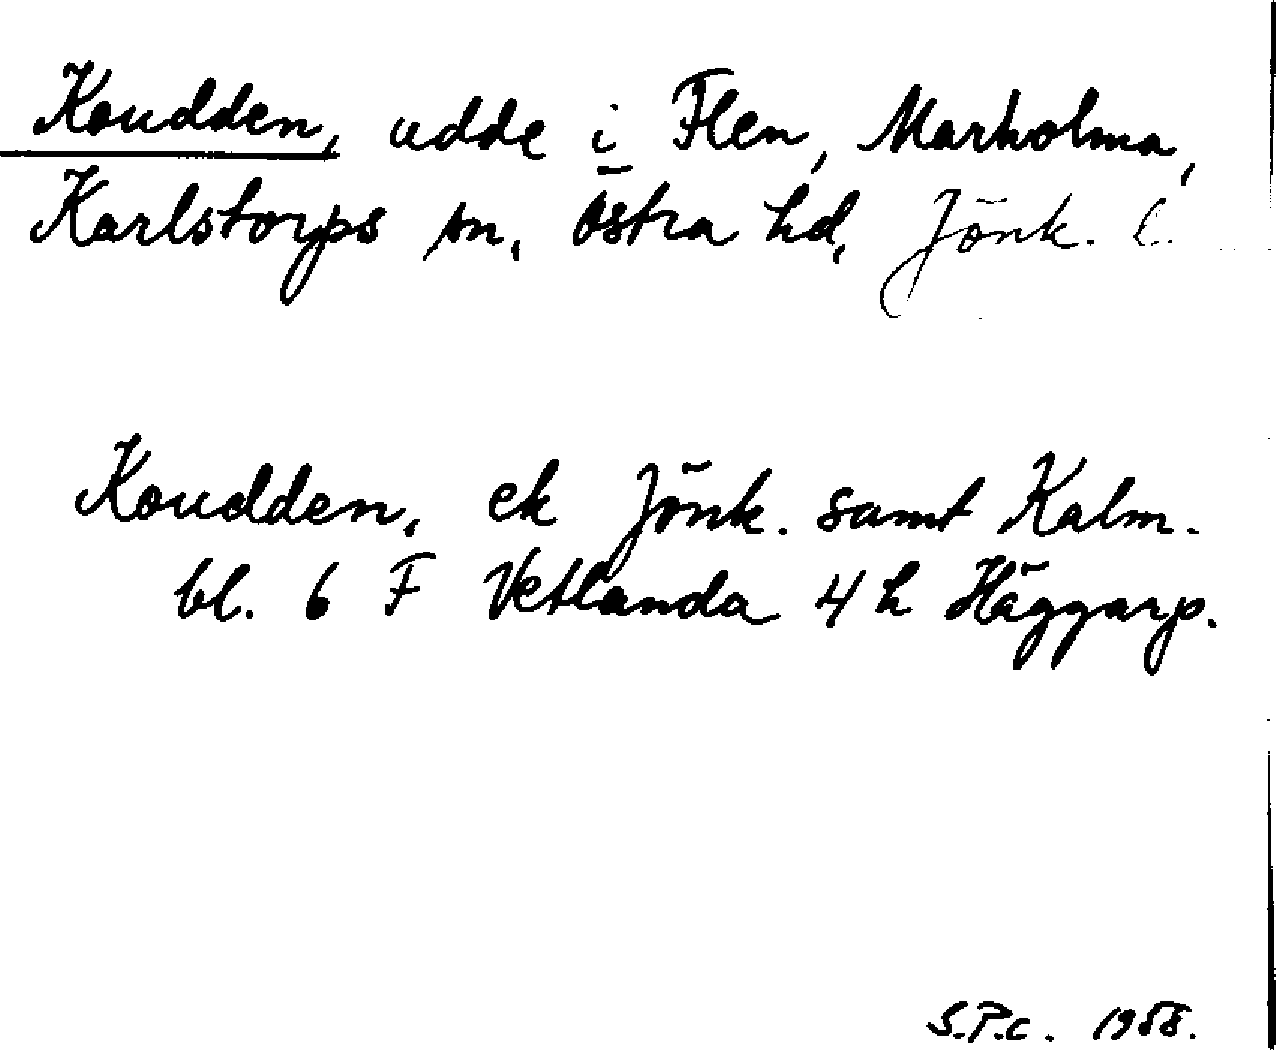 Koudden, udde i Flen, Marholma,
Karlstorps sn, Östra hd, Jönk. l.
Koudden, ek Jönk. samt Kalm.
bl. 6 F Vetlanda 4 h Häggarp.
S.P.C. 1958.